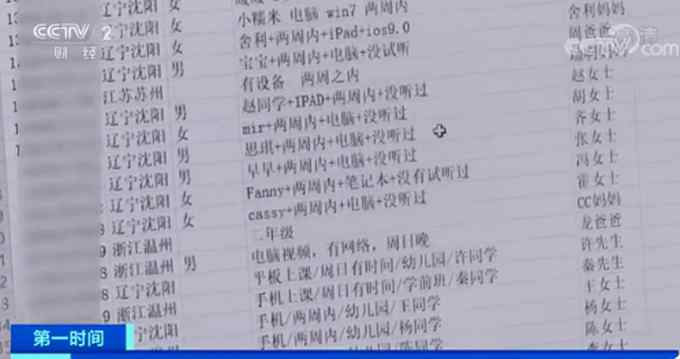 CCTV 2
财经
cn.com
辽宁沈阳 女 小糯米 电脑 win7 两周内 舍利妈妈
辽宁沈阳 女 舍利+两周内+iPad+ios9.0 周爸爸
辽宁沈阳 男 宝宝+两周内+电脑+没试听
江苏苏州 有设备 两周之内 赵女士
辽宁沈阳 男 赵同学+IPAD+两周内+没听过 胡女士
辽宁沈阳 女 mir+两周内+电脑+没听过 齐女士
辽宁沈阳 男 思琪+两周内+电脑+没听过 张女士
辽宁沈阳 男 早早+两周内+电脑+没听过 冯女士
辽宁沈阳 女 Fanny+两周内+笔记本+没有试听过 霍女士
辽宁沈阳 女 cassy+两周内+电脑+没听过 CC妈妈
浙江温州 二年级 龙爸爸
浙江温州 男 电脑视频，有网络，周日晚 许先生
辽宁沈阳 平板上课/周日有时间/幼儿园/许同学 秦先生
浙江温州 手机上课/周日有时间/学前班/秦同学 王女士
手机/两周内/幼儿园/王同学 杨女士
手机/两周内/幼儿园/杨同学 陈女士
李女士
第一时间